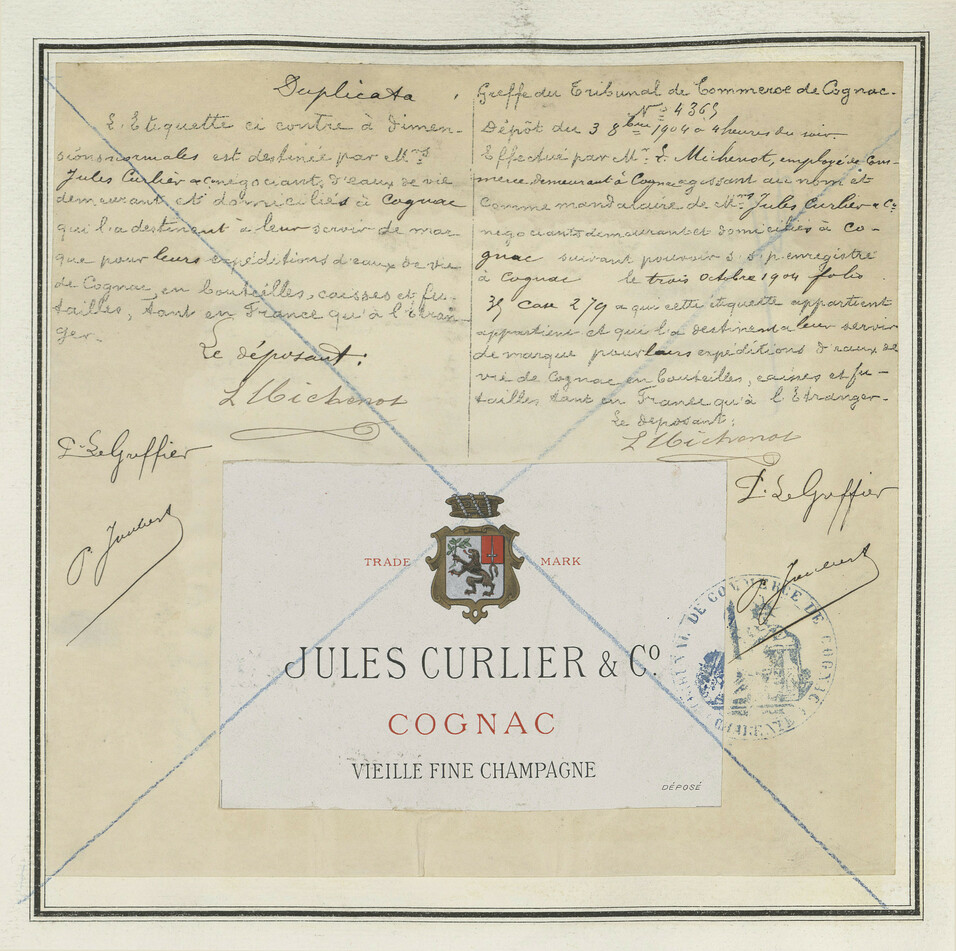 Duplicata
L'Etiquette ci contre à dimen-
sions normales est destinée par Mrs
Jules Curlier & Co négociants d'eaux de vie
demeurant et domiciliés à Cognac
qui l'a destinent à leur servir de mar-
que pour leurs expéditions d'eaux de vie
de Cognac en bouteilles, caisses et fu-
tailles, tant en France qu'à l'étran-
ger.
Le déposant:
L Michenot
Pr Le Greffier
P. Joubert
Greffe du Tribunal de Commerce de Cognac.
No 4365
Dépôt du 3 8bre 1904 a 4 heures du soir.
Effectué par Mr L. Michenot, employé de Com-
merce demeurant à Cognac agissant au nom et
comme mandataire de Mrs Jules Curlier & Co
négociants demeurant et domiciliés à Co-
gnac suivant pouvoir s.s.p. enregistré
à Cognac le trois Octobre 1904 folio
35 Case 279 a qui cette étiquette appartient
appartient et qui l'a destinent a leur servir
de marque pour leurs expéditions d'eaux de
vie de Cognac en bouteilles, caisses et fu-
tailles tant en France qu'à l'Etranger.
Le déposant:
L Michenot
Pr Le Greffier
P. Joubert
TRADE MARK
JULES CURLIER & Co.
COGNAC
VIEILLE FINE CHAMPAGNE
DÉPOSÉ
TRIBUNAL DE COMMERCE DE COGNAC
CHARENTE